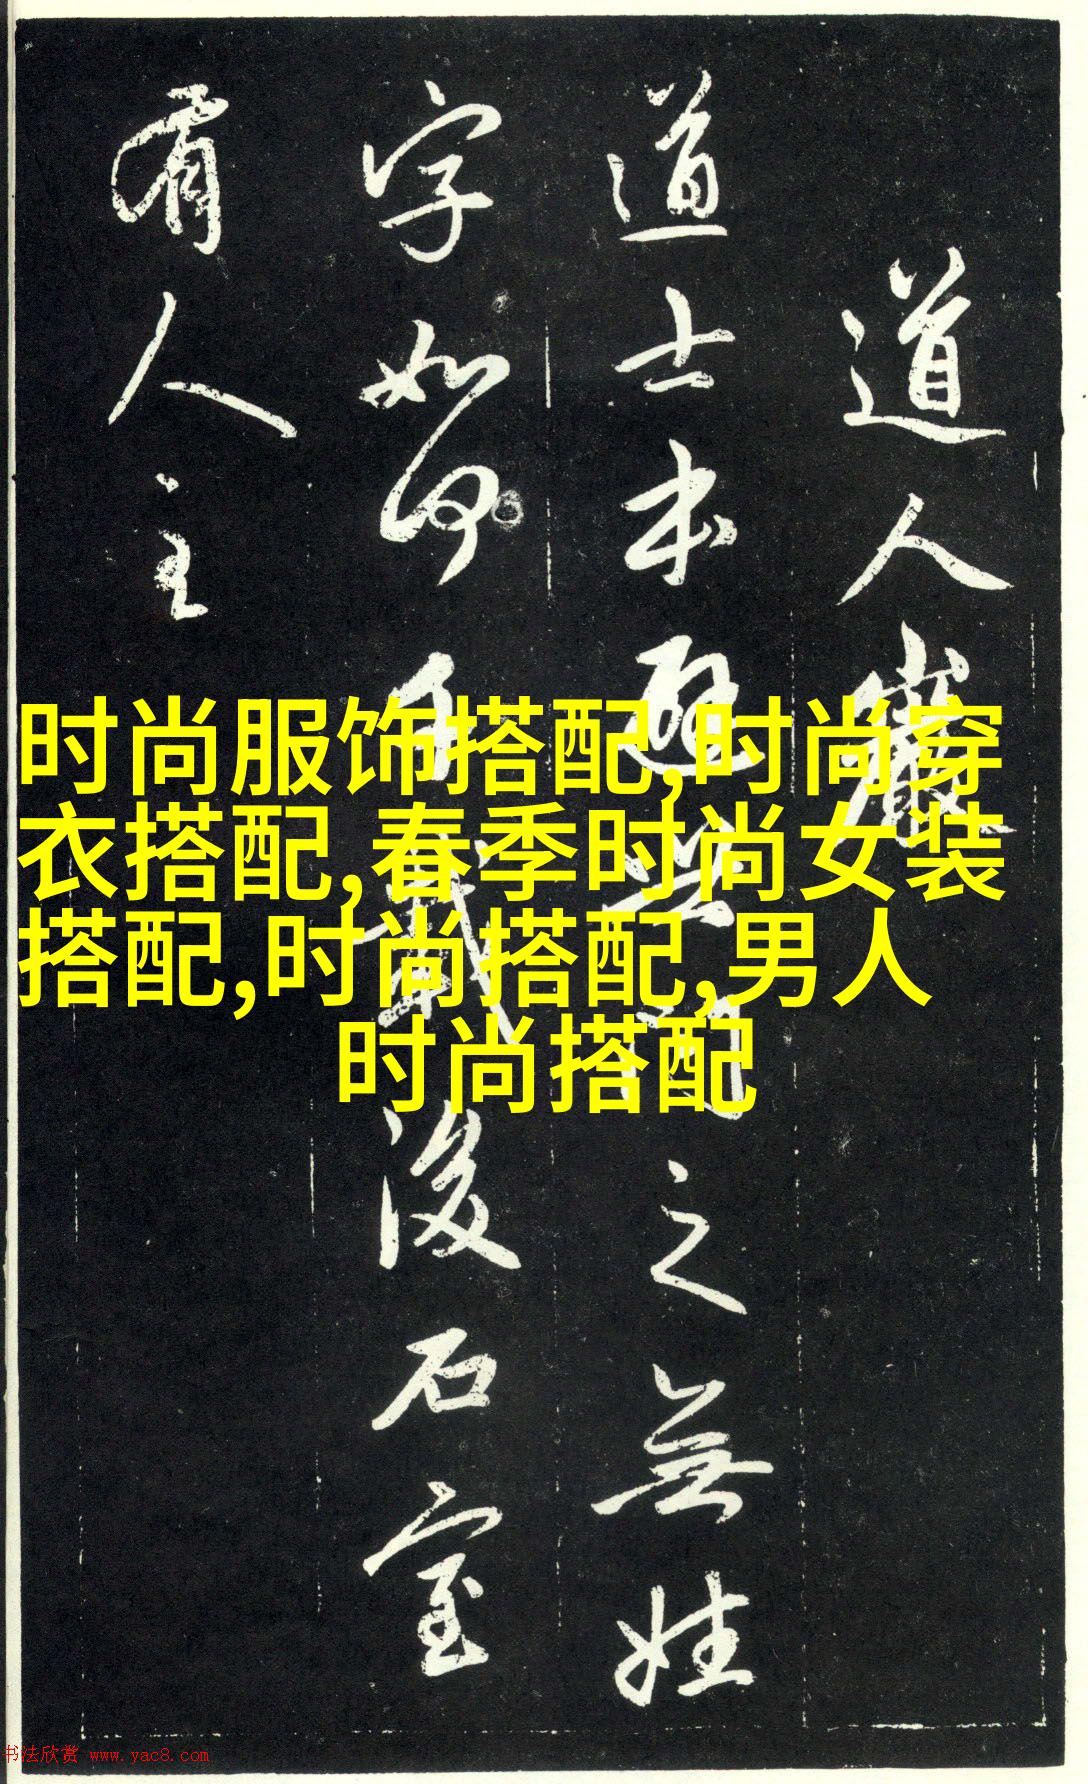 时尚服饰搭配,时尚穿
衣搭配,春季时尚女装
搭配,时尚搭配,男人
时尚搭配
道人巖
道士本避之無姓
字如何自後石室
有人主
书法欣赏 www.yac8.com